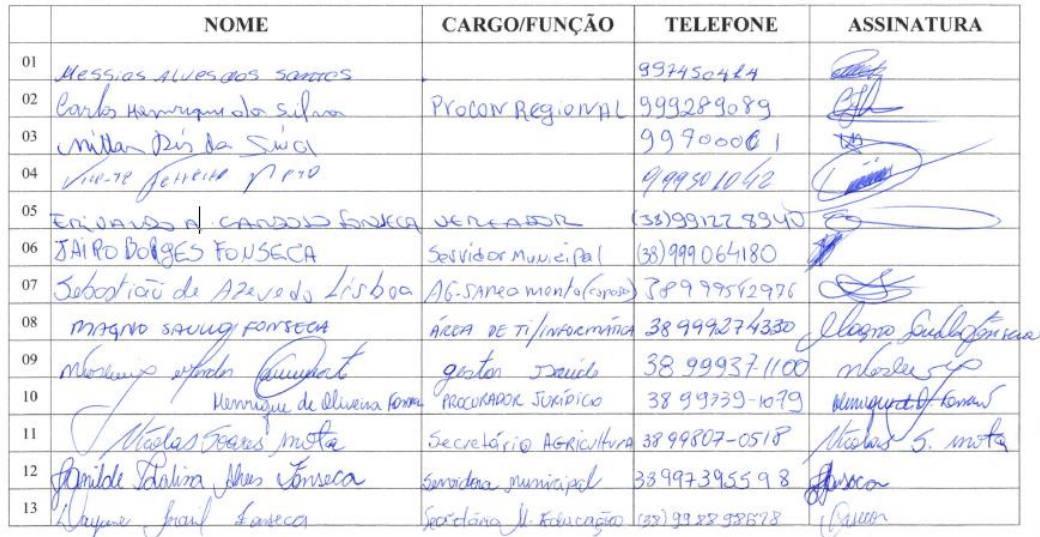 NOME CARGO/FUNÇÃO TELEFONE ASSINATURA
01 Messias Alves dos Santos 997450414
02 Carlos Henrique da Silva PROCON REGIONAL 999289089
03 da 99900001
04 Vicente Ferreira Neto 999501042
05 ERIVALDO A. CARDOSO FONSECA VEREADOR (38)991228940
06 JAIRO BORGES FONSECA Servidor Municipal (38)999064180
07 Sebastião de Azevedo Lisboa AG-SANEAMENTO (copasa) 38999542976
08 MAGNO SAULLO FONSECA ÁREA DE TI/INFORMÁTICA 38 999274330 Magno Saullo Fonseca
09 gestor Saúde 38 99937-1100
10 Henrique de Oliveira Fonseca PROCURADOR JURÍDICO 38 99739-1079 Henrique d. O. Fonseca
11 Nicolas Soares Mota Secretário AGRICULTURA 38 99807-0518 Nicolas S. Mota
12 Alves Fonseca Servidora Municipal 38997395598 Fonseca
13 Fonseca Secretária M. Educação (38) 998898678